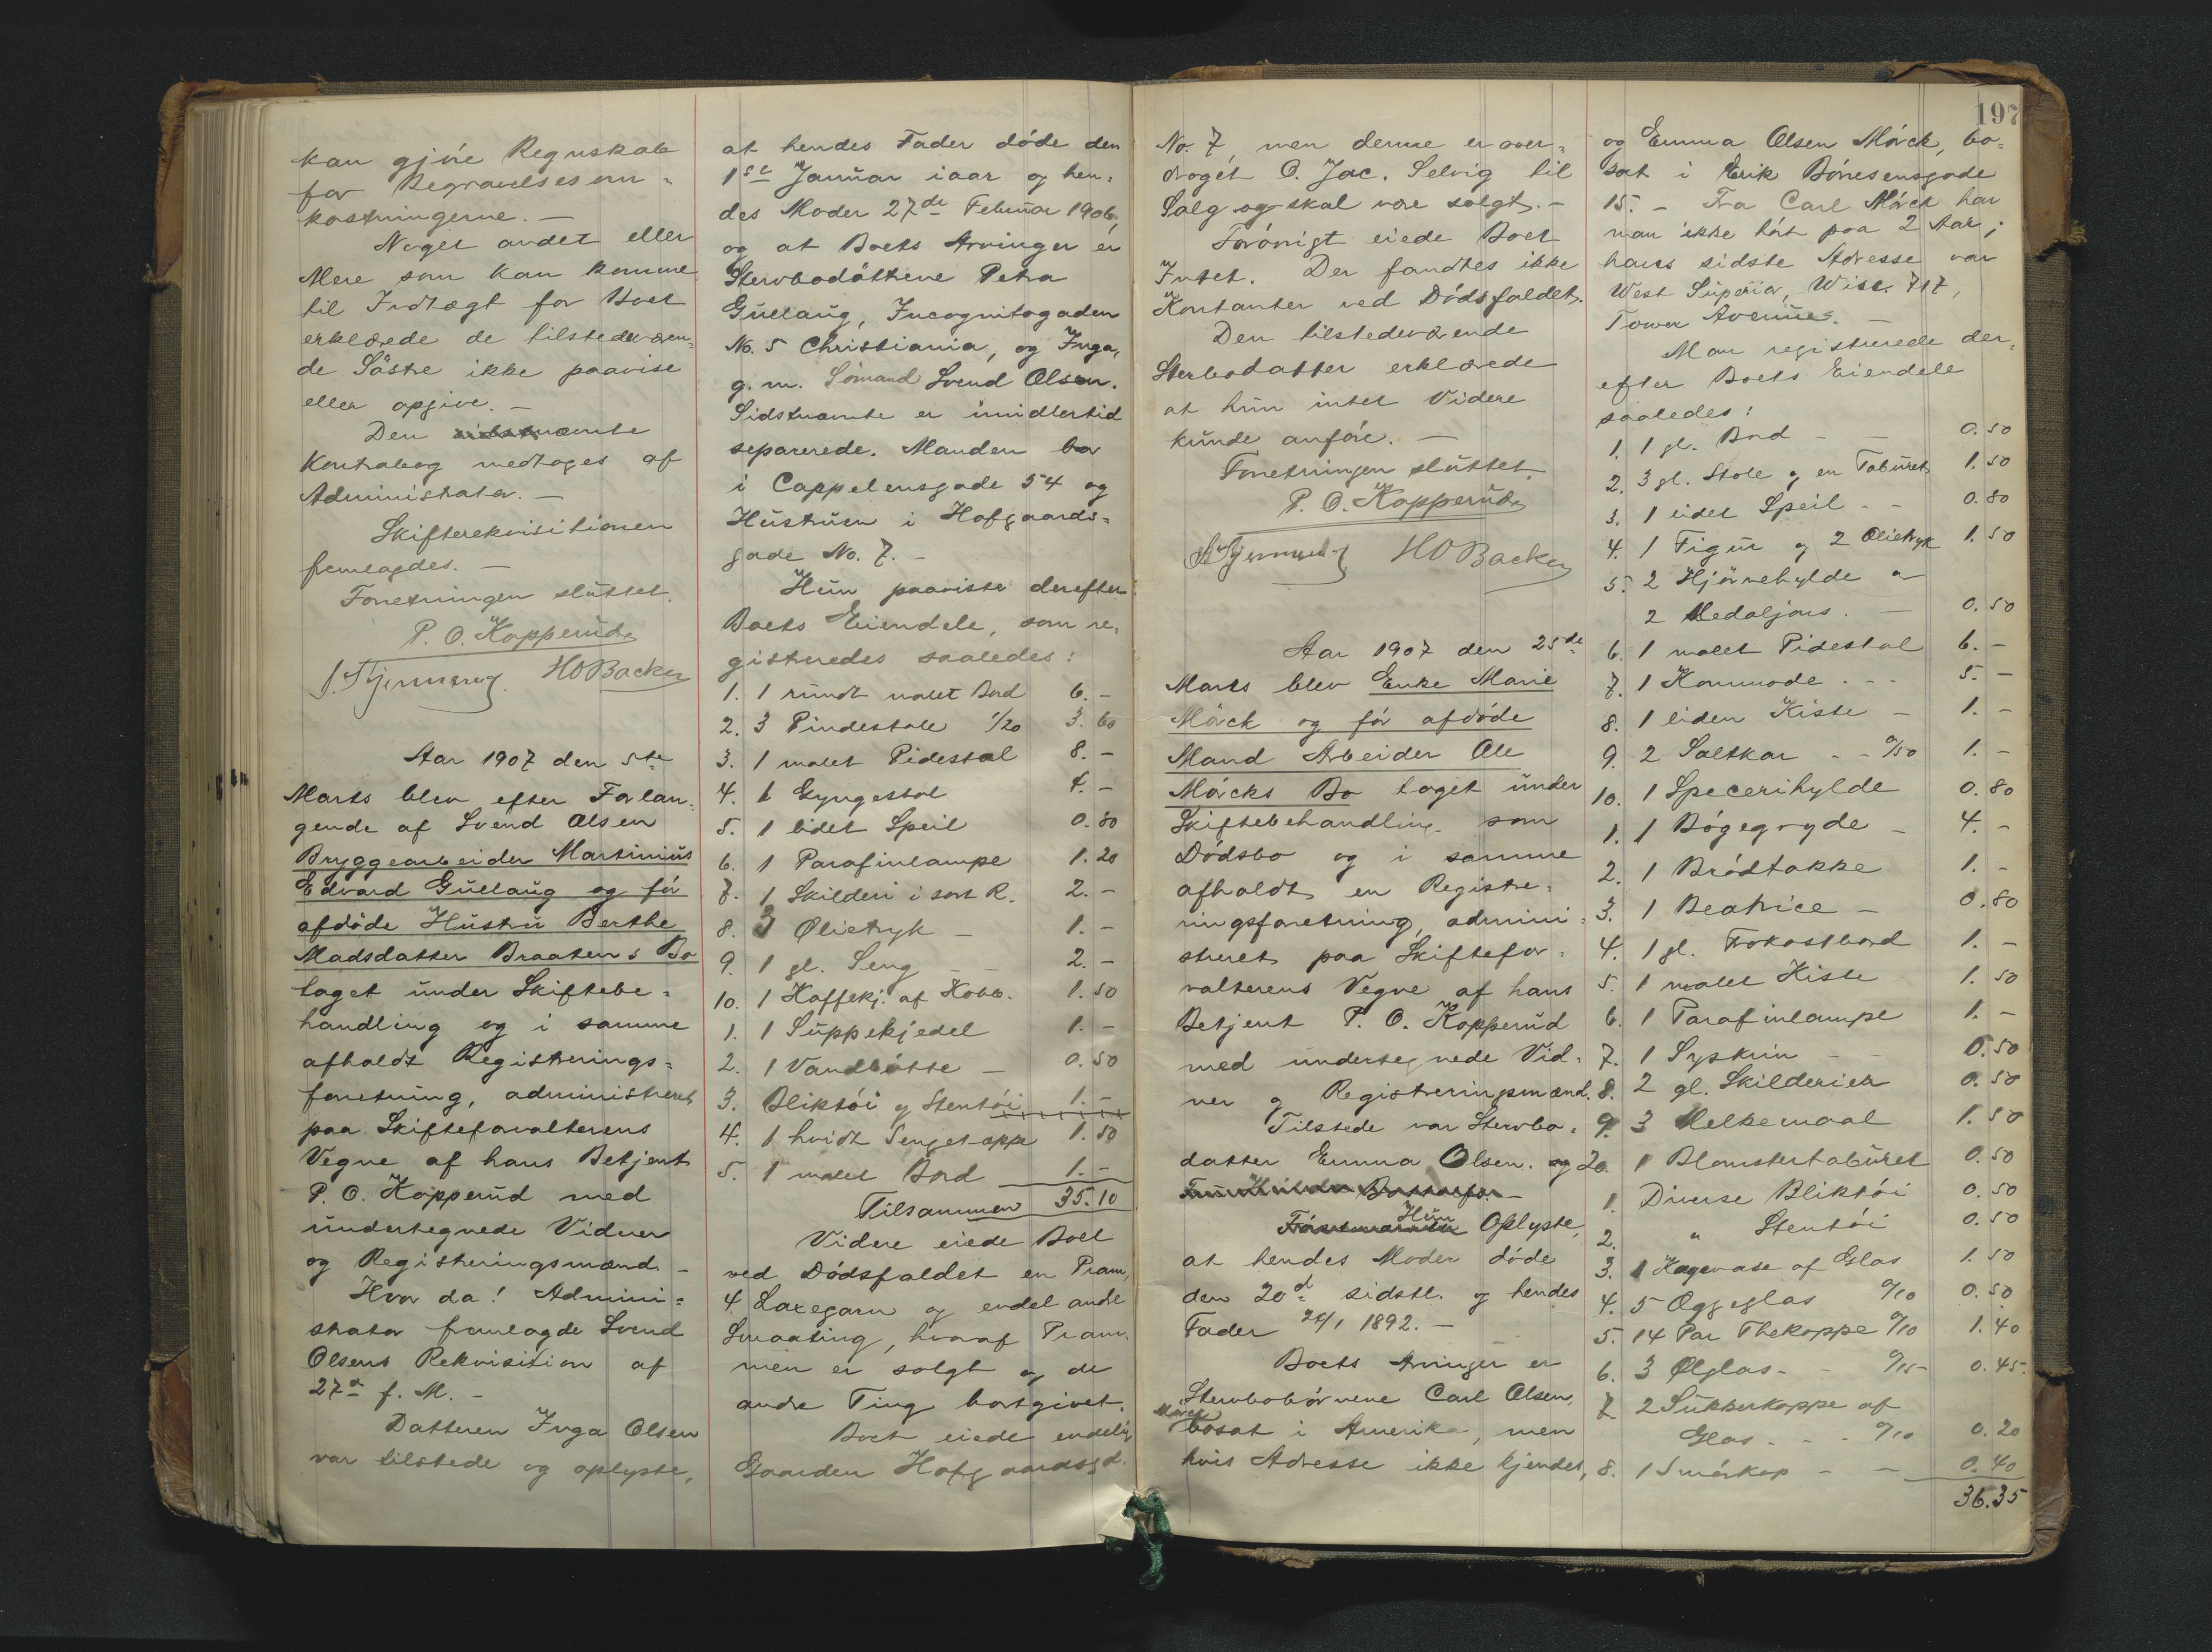 kan gjöre Regnskab
for Begravelsesom-
kostningerne. —
Noget andet eller
Mere som kan komme
til Indtægt for Boet
erklærede de tilstedeværen-
de Söstre ikke paavise
eller opgive. —
Den sidstnævnte
Kontrabog medtages af
Administrator. —
Skifterekvisitionen
fremlagdes. —
Forretningen sluttet.
P. O. Kopperud
HO Backer
Aar 1907 den 5te
Marts blev efter Forlan-
gende af Svend Olsen
Bryggearbeider Martinius
Edvard Gullaug og för
afdöde Hustru Berthe
Madsdatter Braatens Bo
taget under Skiftebe-
handling og i samme
afholdt Registrerings-
forretning, administreret
paa Skifteforvalterens
Vegne af hans Betjent
P. O. Kopperud med
undertegnede Vidner
og Registreringsmænd. —
Hvor da! Admini-
strator fremlagde Svend
Olsens Rekvisition af
27de f. M. —
Datteren Inga Olsen
var tilstede og oplyste,
at hendes Fader döde den
1ste Januar iaar og hen-
des Moder 27de Februar 1906
og at Boets Arvinger er
Stervbodöttrene Petra
Gullaug, Incognitogaden
No. 5 Christiania, og Inga,
g. m. Sömand Svend Olsen.
Sidstnævnte er imidlertid
separerede. Manden bor
i Cappelensgade 54 og
Hustruen i Hofgaards-
gade No. 7. —
Hun paaviste derefter
Boets Eiendele, som re-
gistreredes saaledes:
1. 1 rundt malet Bord 6. —
2. 3 Pindestole 1/20 3. 60
3. 1 malet Pidestal 8. —
4. 1 Gyngestol 4. —
5. 1 lidet Speil 0. 80
6. 1 Parafinlampe 1. 20
7. 1 Skilderi i sort R. 2. —
8. 3 Olietryk — 1. —
9. 1 gl. Seng — — 2. —
10. 1 Kaffekj. af Kobb. 1. 50
1. 1 Suppekjedel 1. —
2. 1 Vandbötte — 0. 50
3. Bliktöi og Stentöi 1. —
4. 1 hvidt Sengetæppe 1. 50
5. 1 malet Bord 1. —
Tilsammen 35. 10
Videre eiede Boet
ved Dödsfaldet en Pram,
4 Laxegarn og endel andre
Smaating, hvoraf Pram-
men er solgt og de
andre Ting bortgivet.
Boet eiede endelig
Gaarden Hofgaardsgd.
197
No. 7, men denne er over-
draget O. Jac. Selvig til
Salg og skal være solgt. —
Forövrigt eiede Boet
Intet. Der fandtes ikke
Kontanter ved Dödsfaldet.
Den tilstedeværende
Sterbodatter erklærede
at hun intet Videre
kunde anföre. —
Forretningen sluttet.
P. O. Kopperud
HO Backer
Aar 1907 den 25de
Marts blev Enke Marie
Mörck og för afdöde
Mand Arbeider Ole
Mörcks Bo taget under
Skiftebehandling som
Dödsbo og i samme
afholdt en Registre-
ringsforretning, admini-
streret paa Skiftefor-
valterens Vegne af hans
Betjent P. O. Kopperud
med undertegnede Vid-
ner og Registreringsmænd.
Tilstede var Stervbo-
datter Emma Olsen. og
Hun Oplyste,
at hendes Moder döde
den 20de sidstl. og hendes
Fader 24/1 1892. —
Boets Arvinger er
Stervbobörnene Carl Olsen,
Mörck bosat i Amerika, men
hvis Adresse ikke kjendes,
og Emma Olsen Mörck, bo-
sat i Erik Börresensgade
15. — Fra Carl Mörck har
man ikke hört paa 2 Aar;
hans sidste Adresse var
West Superior, Wisc. 717,
Tower Avenue. —
Man registrerede der-
efter Boets Eiendele
saaledes:
1. 1 gl. Bord — — 0. 50
2. 3 gl. Stole og en Taburet 1. 50
3. 1 lidet Speil — — 0. 80
4. 1 Figur og 2 Olietryk 1. 50
5. 2 Hjörnehylde og
2 Medaljons. — 0. 50
6. 1 malet Pidestal 6. —
7. 1 Kommode — — 5. —
8. 1 liden Kiste — 1. —
9. 2 Saltkar — — o/50 1. —
10. 1 Specerihylde 0. 80
1. 1 Bögegryde — 4. —
2. 1 Brödtakke 1. —
3. 1 Beatrice — 0. 80
4. 1 gl. Frokostbord 1. —
5. 1 malet Kiste 1. 50
6. 1 Parafinlampe 1. —
7. 1 Syskrin — — 0. 50
8. 2 gl. Skilderier 0. 50
9. 3 Melkemaal 1. 50
20. 1 Blomstertaburet 0. 50
1. Diverse Bliktöi 0. 50
2. " Stentöi 0. 50
3. 1 Kagevase af Glas 1. 50
4. 5 Æggeglas o/10 0. 50
5. 14 Par Thekoppe o/10 1. 40
6. 3 Ölglas — — o/15 0. 45.
7. 2 Sukkerkoppe af
Glas — — o/10 0. 20
8. 1 Smörkop — — 0. 40
36. 35